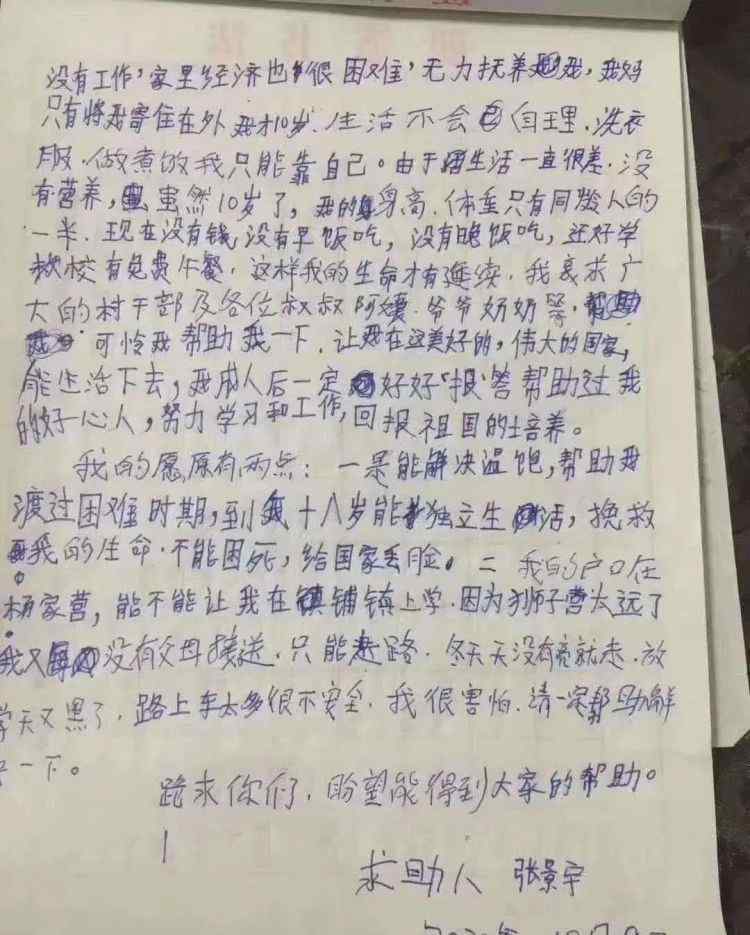 没有工作，家里经济也很困难，无力抚养我，我妈
只有将我寄住在外 我才10岁、生活不会自理、洗衣
服、做煮饭我只能靠自己。由于生活一直很差、没
有营养，虽然10岁了，我的身高、体重只有同龄人的
一半、现在没有钱，没有早饭吃，没有晚饭吃，还好学
校有免费午餐、这样我的生命才有延续、我哀求广
大的村干部及各位叔叔阿姨、爷爷奶奶等，帮助
可怜我帮助我一下、让我在这美好的，伟大的国家，
能生活下去，我成人后一定好好报答帮助过我
的好心人，努力学习和工作，回报祖国的培养。
我的愿原有两点：一是能解决温饱，帮助我
渡过困难时期，到我十八岁能独立生活，挽救
我的生命、不能困死，给国家丢脸。二 我的户口在
杨家营，能不能让我在镇铺镇上学、因为狮子营太远了
我又没有父母接送、只能赶路、冬天天没有亮就走、放
学天又黑了、路上车太多很不安全、我很害怕、请一定帮助解
一下。
跪求你们，盼望能得到大家的帮助。
求助人 张景宇